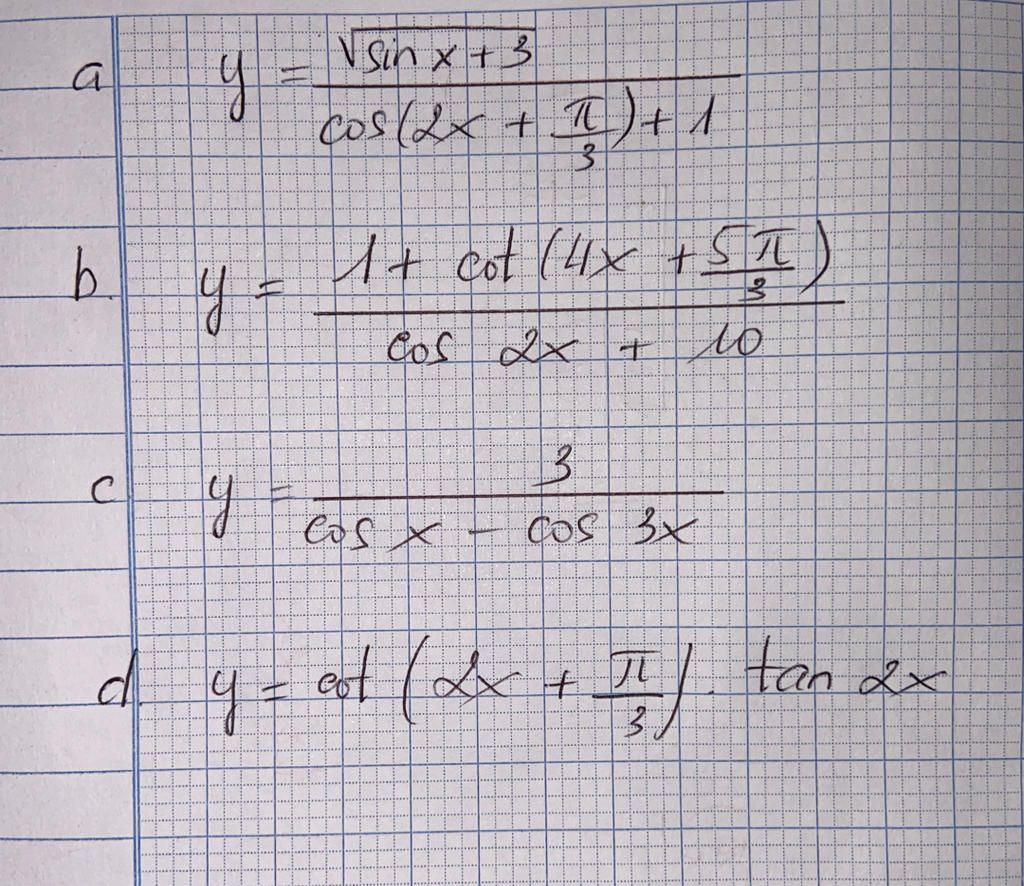 a y = √(sin x + 3) / (cos(2x + π/3) + 1)
b. y = (1 + cot(4x + 5π/3)) / (cos 2x + 10)
c y = 3 / (cos x - cos 3x)
d. y = cot(2x + π/3) . tan 2x